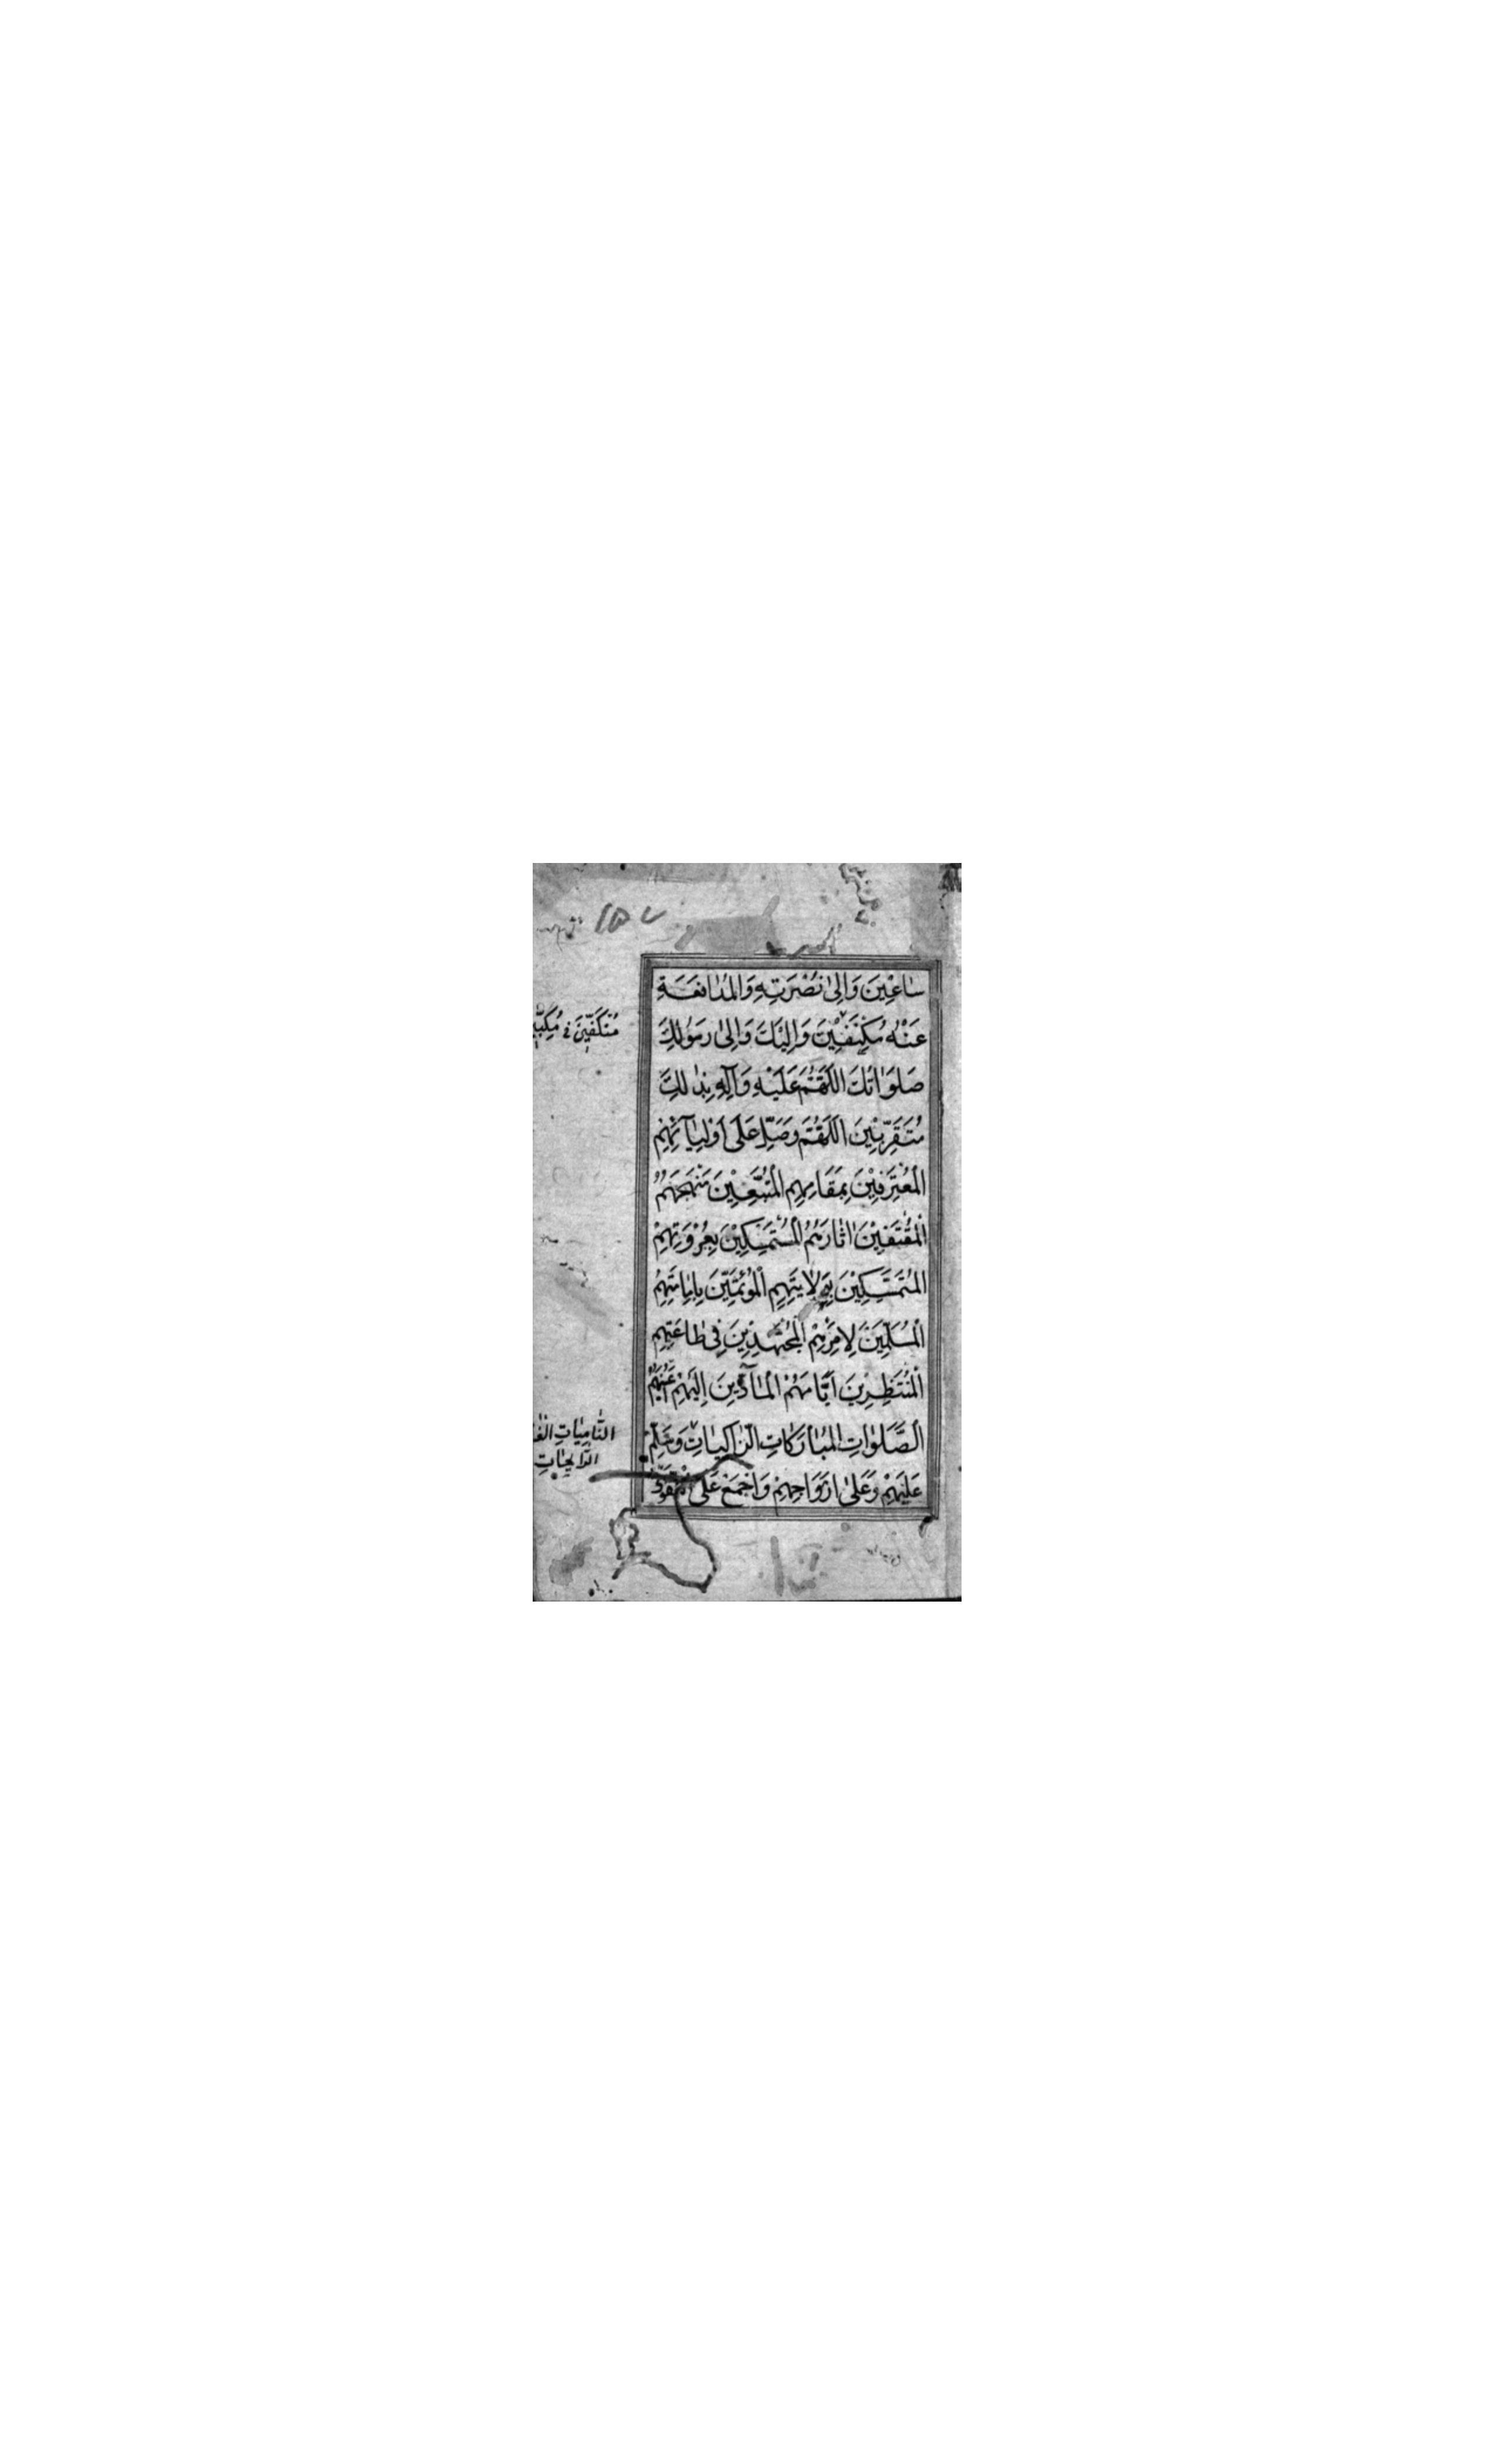 سٰاعِيْنَ وَاِلىٰ نُصْرَتِهِ وَالْمُدٰافَعَةِ
عَنْهُ مُكْنِفِيْنَ وَاِلَيْكَ وَاِلىٰ رَسُوْلِكَ
صَلَوٰاتُكَ اللّٰهُمَّ عَلَيْهِ وَآلِهِ بِذٰلِكَ
مُتَقَرِّبِيْنَ اَللّٰهُمَّ وَصَلِّ عَلىٰ اَوْلِيٰآئِهِمِ
الْمُعْتَرِفِيْنَ بِمَقَامِهِمِ الْمُتَّبِعِيْنَ مَنْهَجَهُمُ
الْمُقْتَفِيْنَ اٰثٰارَهُمُ الْمُسْتَمْسِكِيْنَ بِعُرْوَتِهِمِ
الْمُتَمَسِّكِيْنَ بِوَلايَتِهِمِ الْمُؤْتَمِّيْنَ بِاِمٰامَتِهِمُ
الْمُسَلِّمِيْنَ لِاَمْرِهِمُ الْمُجْتَهِدِيْنَ فِى طٰاعَتِهِمِ
الْمُنْتَظِرِيْنَ اَيّٰامَهُمُ الْمٰآدِّيْنَ اِلَيْهِمْ اَعْيُنَهُمُ
الصَّلَوٰاتِ الْمُبٰارَكٰاتِ الزّٰاكِيٰاتِ وَسَلِّمْ
عَلَيْهِمْ وَعَلىٰ اَرْوٰاحِهِمْ وَاجْمَعْ عَلَى التَّقْوٰى
النّٰامِيٰاتِ